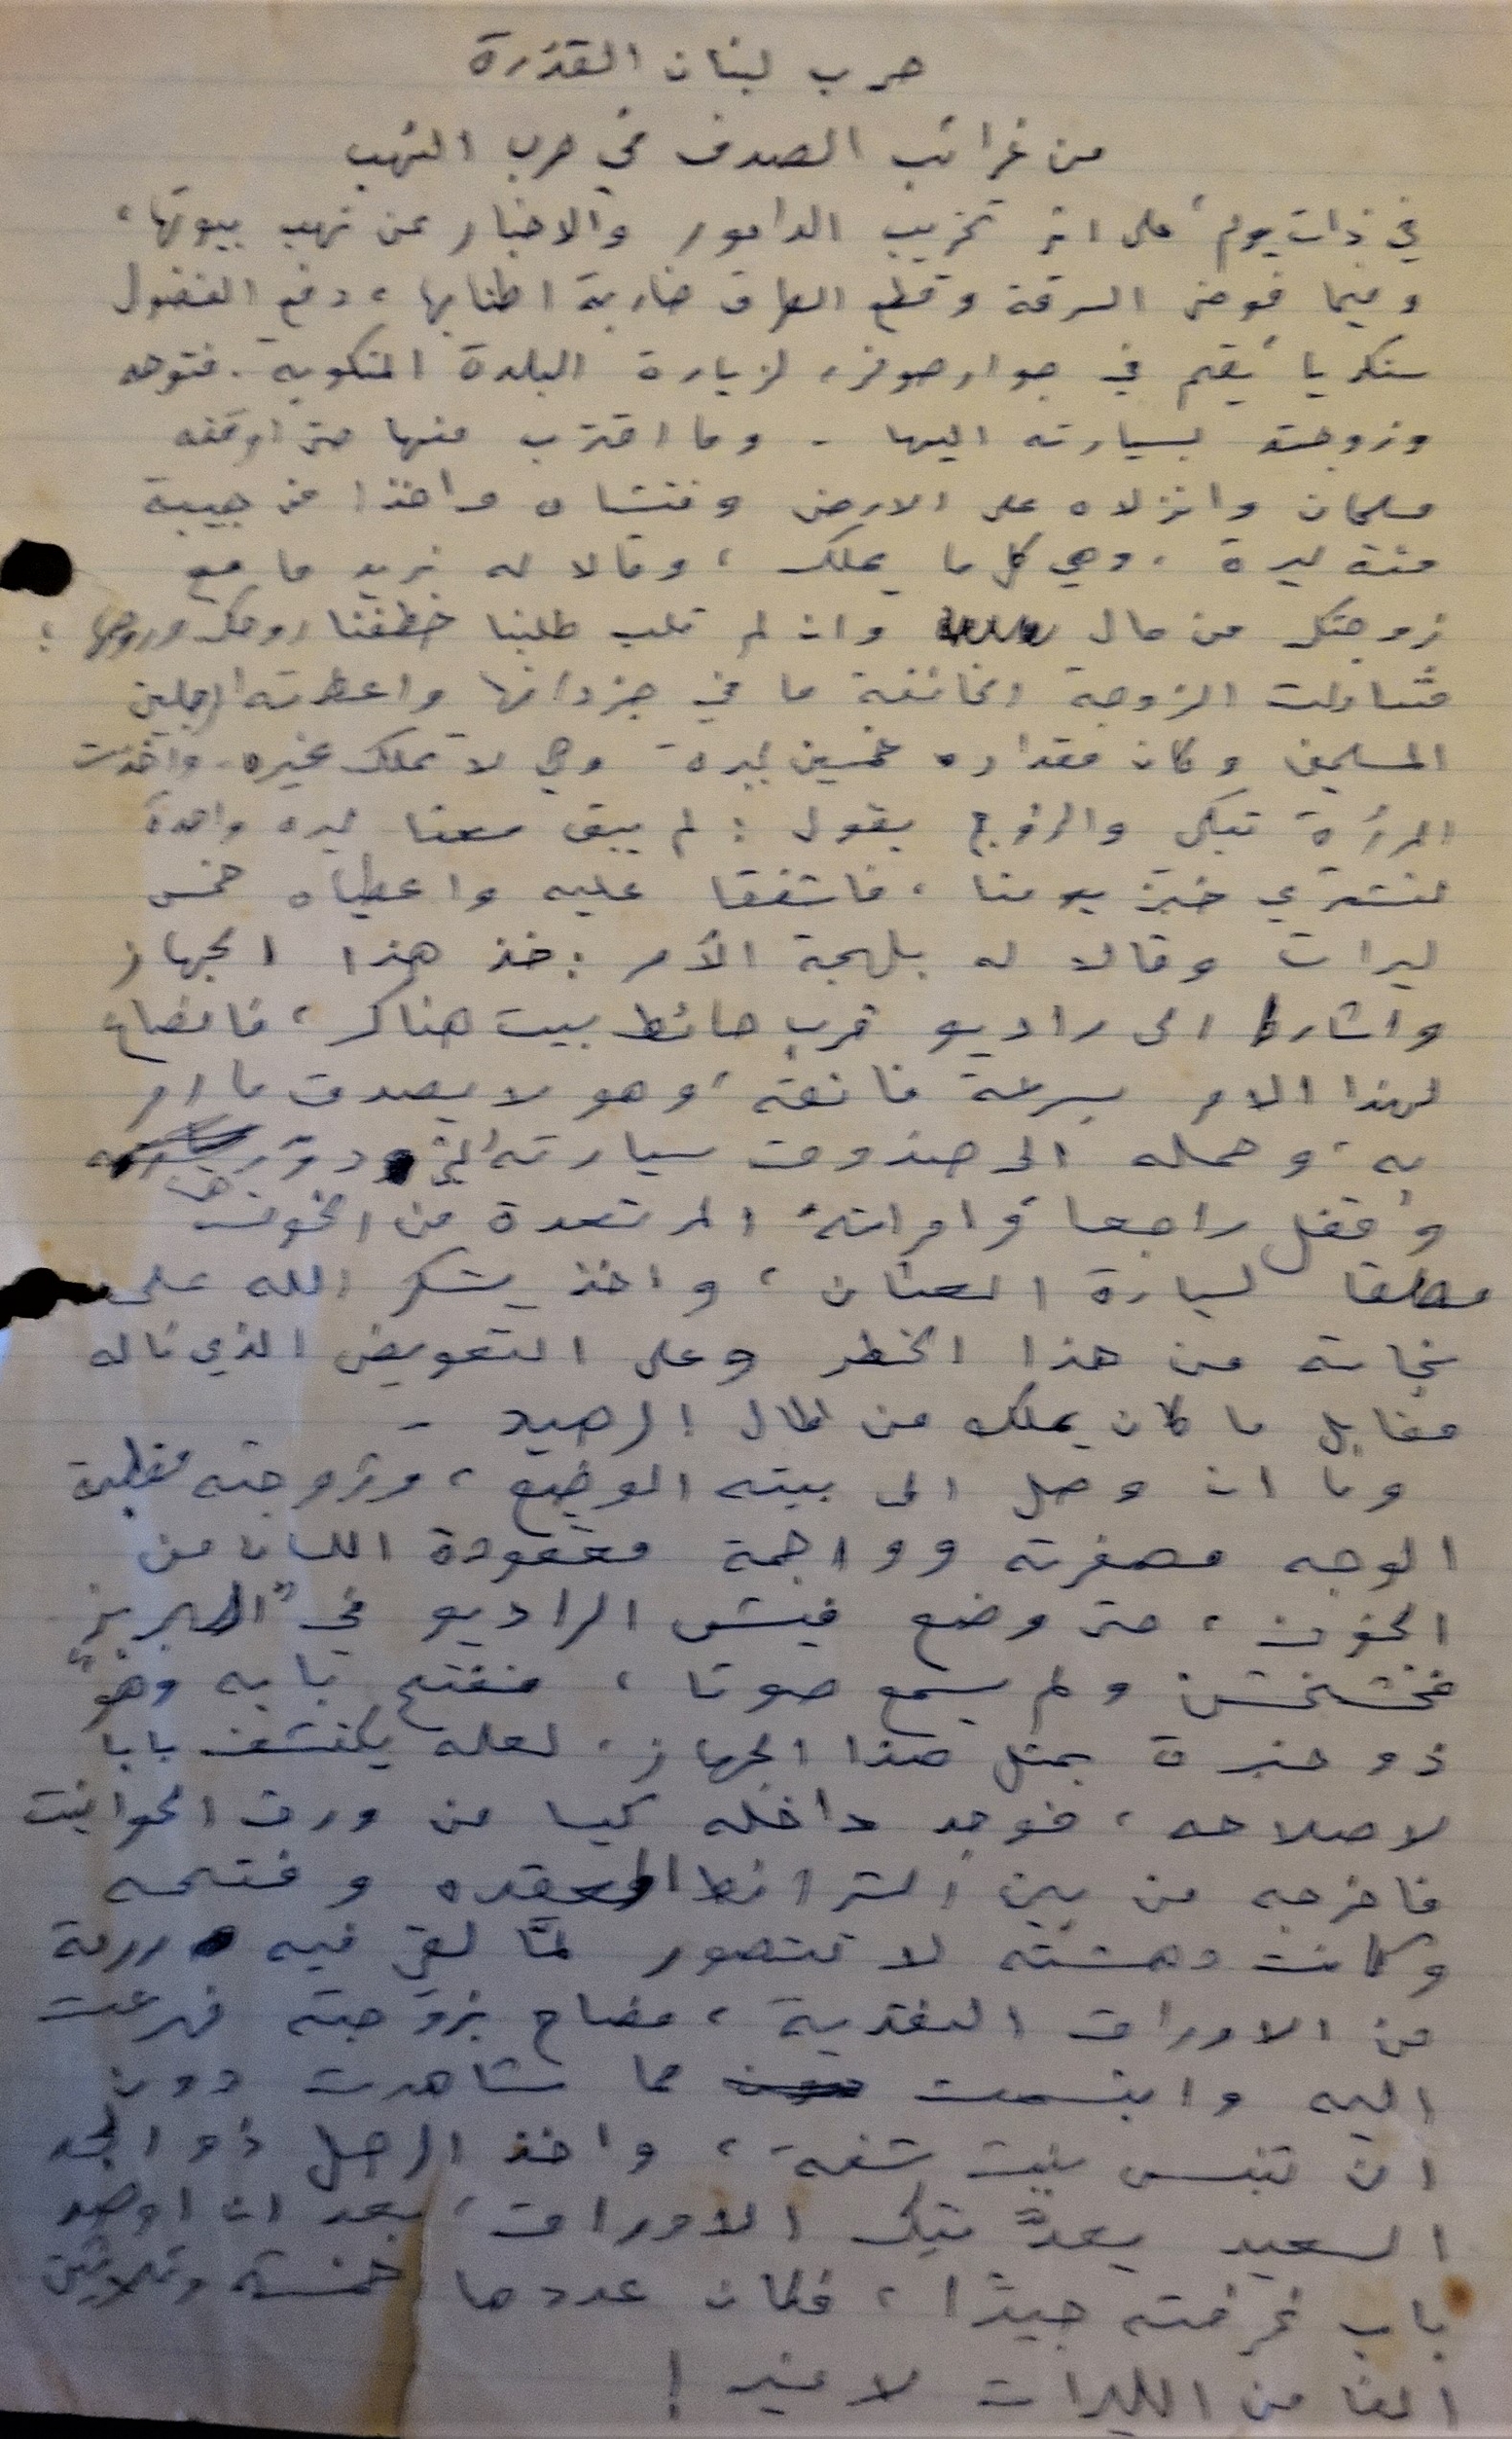 حرب لبنان القذرة
من غرائب الصدف في حرب النهب
في ذات يوم، على اثر تخريب الدامور والاخبار عن نهب بيوتها،
وفيما فوضى السرقة وقطع الطرق ضاربة اطنابها، دفع الفضول
سنكريا يقيم في جوار صوفر، لزيارة البلدة المنكوبة. فتوجه
وزوجته بسيارته اليها. وما اقترب منها حتى اوقفه
مسلحان وانزلاه على الارض وفتشاه واخذا من جيبه
مئة ليرة، وهي كل ما يملك، وقالا له نريد ما مع
زوجتك من مال وان لم تلب طلبنا خطفنا روحك وروحها؛
فتناولت الزوجة الخائفة ما في جزدانها واعطته الرجلين
المسلحين وكان مقداره خمسين ليرة وهي لا تملك غيره. واخذت
المرأة تبكي والزوج يقول: لم يبق معنا ليره واحدة
لنشتري خبز يومنا، فاشفقا عليه واعطياه خمس
ليرات وقالا له بلهجة الآمر: خذ هذا الجهاز
واشارا الى راديو قرب حائط بيت هناك، فانصاع
لهذا الامر بسرعة فائقة، وهو لا يصدق ما امر
به، وحمله الى صندوق سيارته التي دور
وقفل راجعا وامرأته المرتعدة من الخوف
مطلقا لسيارة العنان، واخذ يشكر الله على
نجاته من هذا الخطر وعلى التعويض الذي ناله
مقابل ما كان يملك من المال الرصيد -
وما ان وصل الى بيته الوضيع، وزوجته مقطبة
الوجه مصفرته وواجمة معقودة اللسان من
الخوف، حتى وضع فيش الراديو في "البريز"
فخشخش ولم يسمع صوتا، ففتح بابه وهو
ذو خبرة بمثل هذا الجهاز، لعله يكتشف بابا
لاصلاحه، فوجد داخله كيسا من ورق الحوانيت
فاخرجه من بين الشرائط المعقده وفتحه
وكانت دهشته لا تتصور لمّا لقي فيه رزمة
من الاوراق النقدية، فصاح بزوجته فهرعت
اليه وابتسمت مما شاهدت دون
ان تنبس ببنت شفة، واخذ الرجل ذو الجد
السعيد يعدّ تيك الاوراق، بعد ان اوصد
باب غرفته جيدًا، فكان عددها خمسة وثلاثين
الفا من الليرات لا غير!